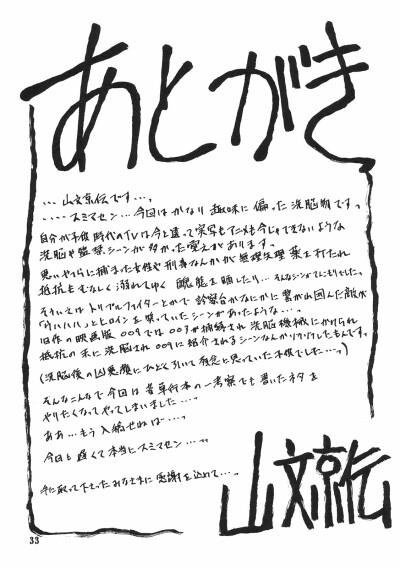 あとがき
…山文京伝です…っ
……スミマセン…今回はかなり趣味に偏った洗脳物ですっ
自分が子供時代のTVは今と違って実写もアニメも今じゃできないような
洗脳や拷問シーンが多かった覚えがあります。
悪いやつらに捕まった女性や刑事なんかが無理矢理薬を打たれ
抵抗もむなしく溺れてゆく 醜態を晒したり…そんなシーンがてにもりでした。
そういえばトリプルファイターとかで診察台かなにかに
旧作の映画版009では003が捕縛され洗脳機械にかけられ
抵抗の末に洗脳され009に紹介されるシーンなんか
(洗脳後の凶悪顔にひどく引いて残念に思っていた子供でした…っ)
そんなこんなで今回は昔単行本の一考察でも書いたネタを
やりたくなってやってしまいました…っ
ああ…もう入稿せねば…っ
今回も遅くて本当にスミマセン…っ
手に取って下さったみなさまに感謝を込めて…っ
山文京伝
33